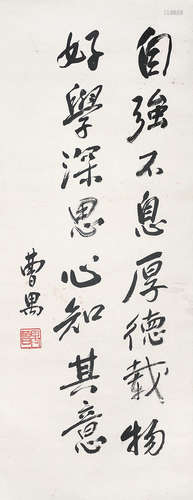 自強不息厚德載物
好學深思心知其意
曹禺